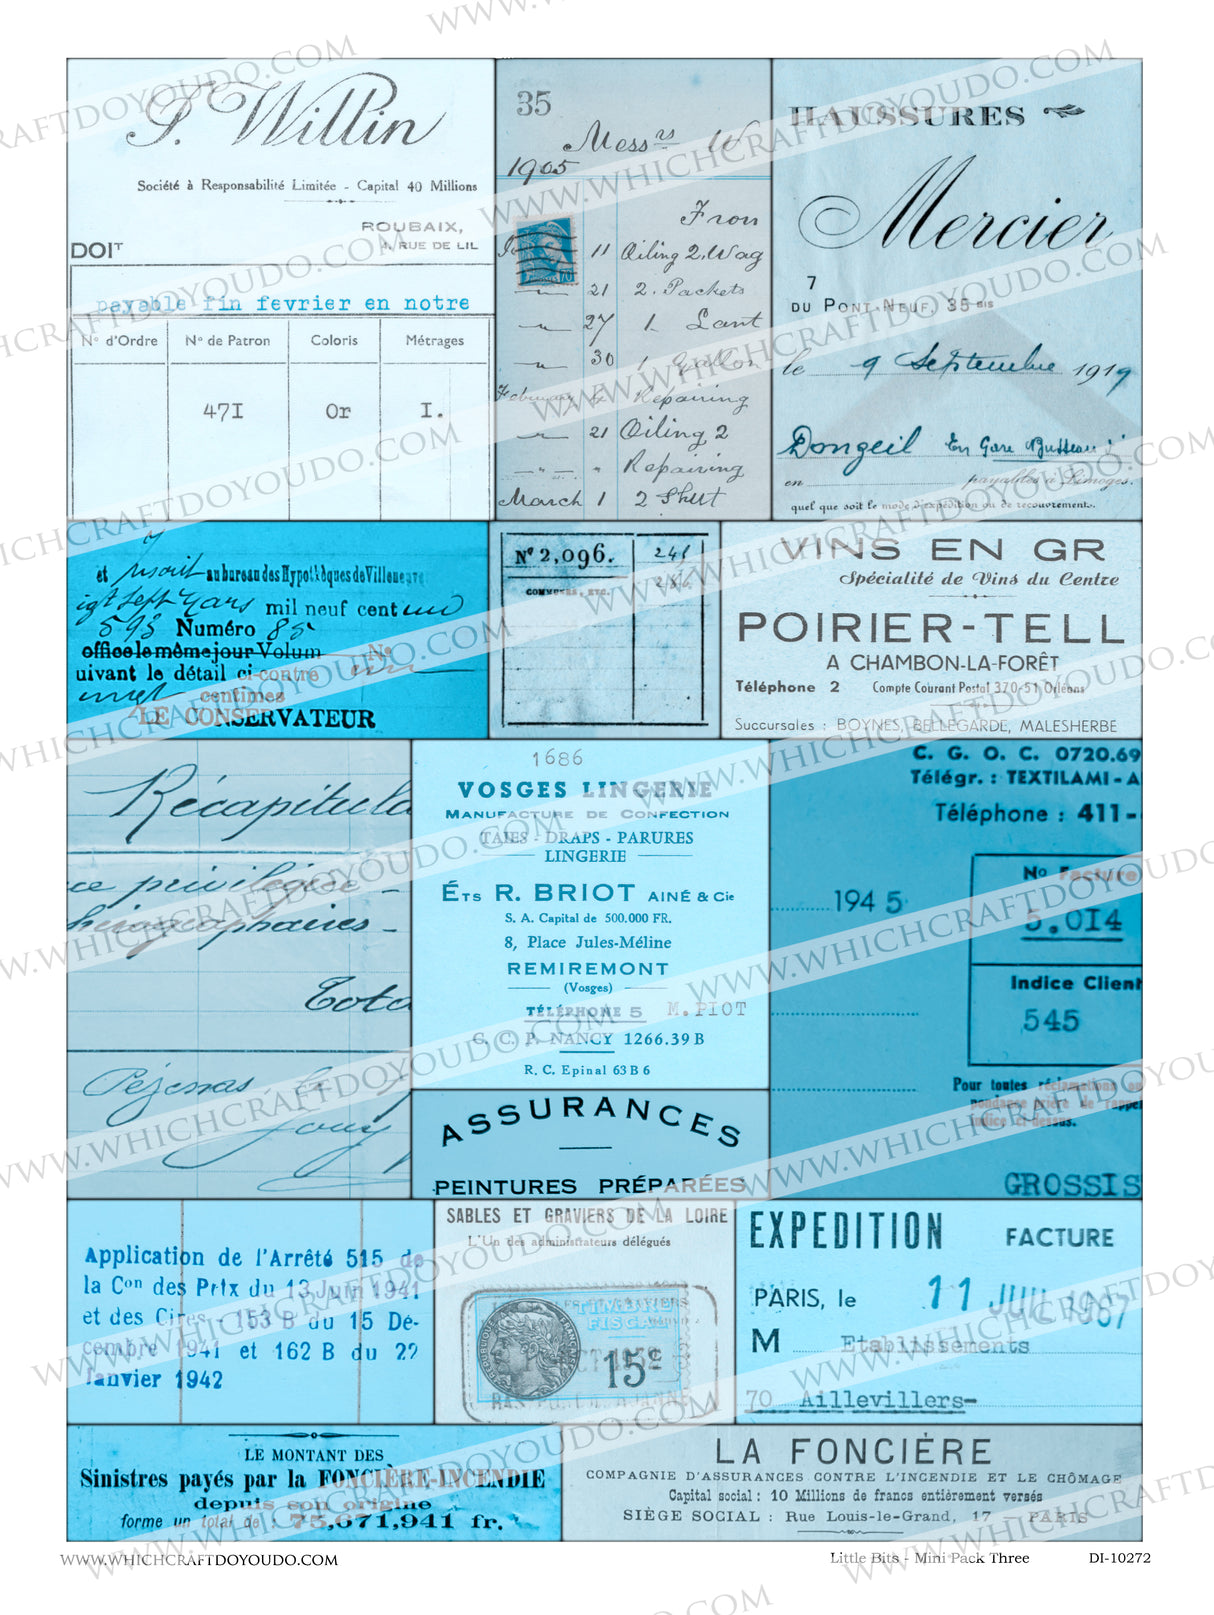 P. Willin
Société à Responsabilité Limitée - Capital 40 Millions
ROUBAIX,
RUE DE LIL
DOIT
payable fin fevrier en notre
No d'Ordre No de Patron Coloris Métrages
471 Or 1.
35
Messrs W
1905
Fron
11 Oiling 2, Wag
21 2. Packets
27 1 Lant
30 1 Gallon
February Repairing
21 Oiling 2
" Repairing
March 1 2 Shut
HAUSSURES
Mercier
7
DU PONT-NEUF, 35 BIS
le 9 Septembre 1919
Dongeil En Gare
en payables à Limoges.
quel que soit le mode d'expédition ou de recouvrement.
et au bureau des Hypothèques de Villeneuve
mil neuf cent
593 Numéro 85
office le même jour Volum No
uivant le détail ci-contre
centimes
LE CONSERVATEUR
No 2,096. 241
286
COMMUNES, ETC.
VINS EN GR
Spécialité de Vins du Centre
POIRIER-TELL
A CHAMBON-LA-FORÊT
Téléphone 2 Compte Courant Postal 370-51 Orléans
Succursales : BOYNES, BELLEGARDE, MALESHERBE
Récapitula
ce privilégiée -
hirographaires -
Tota
Pézenas le
1686
VOSGES LINGERIE
MANUFACTURE DE CONFECTION
TAIES - DRAPS - PARURES
LINGERIE
ÉTS R. BRIOT AINÉ & Cie
S. A. Capital de 500.000 FR.
8, Place Jules-Méline
REMIREMONT
(Vosges)
TÉLÉPHONE 5 M.PIOT
C. C. P. NANCY 1266.39 B
R. C. Epinal 63 B 6
C. G. O. C. 0720.69
Télégr. : TEXTILAMI - A
Téléphone : 411-
No Facture
194 5
5.014
Indice Client
545
Pour toutes réclamations ou
pondance prière de rappel
indice ci-dessus.
GROSSIS
ASSURANCES
PEINTURES PRÉPARÉES
Application de l'Arrêté 515 de
la Con des Prix du 13 Juin 1941
et des Cires - 153 B du 15 Dé-
cembre 1941 et 162 B du 22
Janvier 1942
SABLES ET GRAVIERS DE LA LOIRE
L'Un des administrateurs délégués
TIMBRE
FISCAL
15c
REPUBLIQUE FRANÇAISE
EXPEDITION FACTURE
PARIS, le 11 JUIL 1967
M Etablissements
70 Aillevillers-
LE MONTANT DES
Sinistres payés par la FONCIÈRE-INCENDIE
depuis son origine
forme un total de : 75,671,941 fr.
LA FONCIÈRE
COMPAGNIE D'ASSURANCES CONTRE L'INCENDIE ET LE CHÔMAGE
Capital social : 10 Millions de francs entièrement versés
SIÈGE SOCIAL : Rue Louis-le-Grand, 17 - PARIS
WWW.WHICHCRAFTDOYOUDO.COM
Little Bits - Mini Pack Three DI-10272